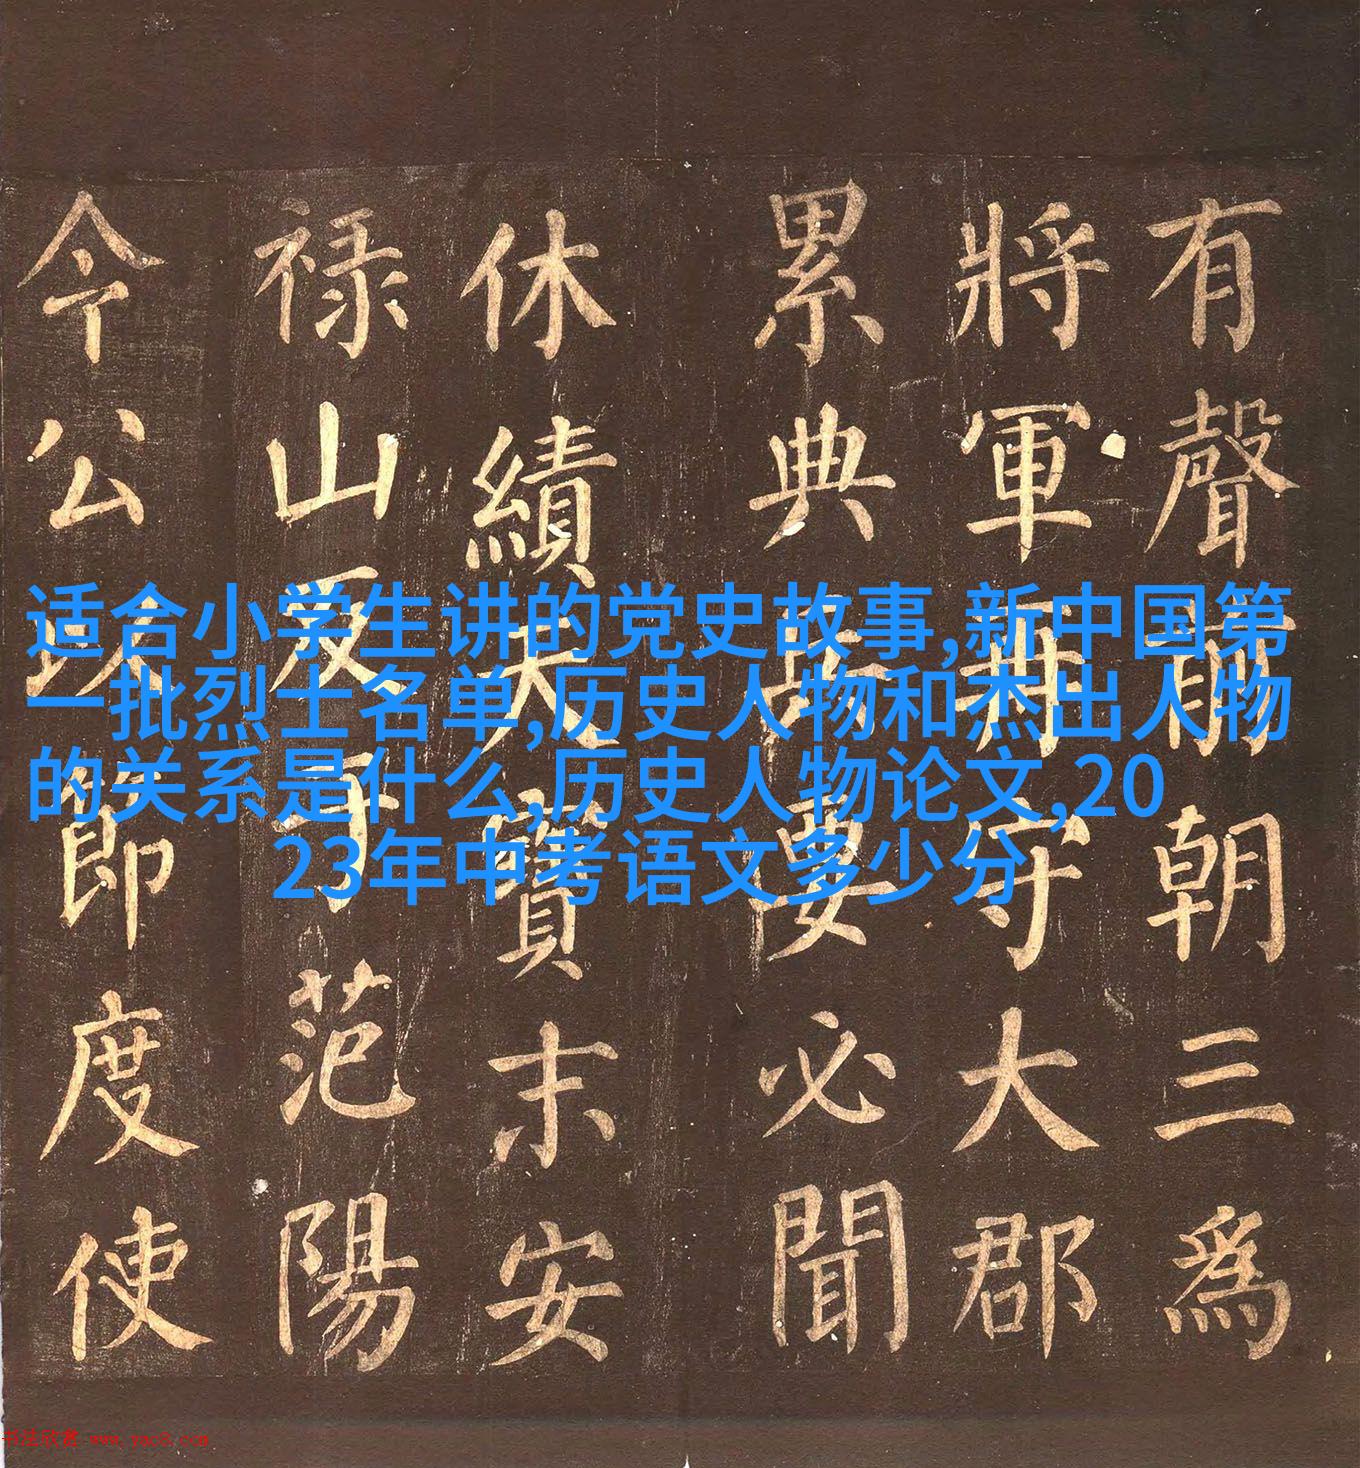 有聲前朝三為
將軍再守大郡
累典要必聞
休績天寶末安
禄山反于范陽
今公以節度使
适合小学生讲的党史故事,新中国第
一批烈士名单,历史人物和杰出人物
的关系是什么,历史人物论文,20
23年中考语文多少分
书法欣赏 www.yac8.com